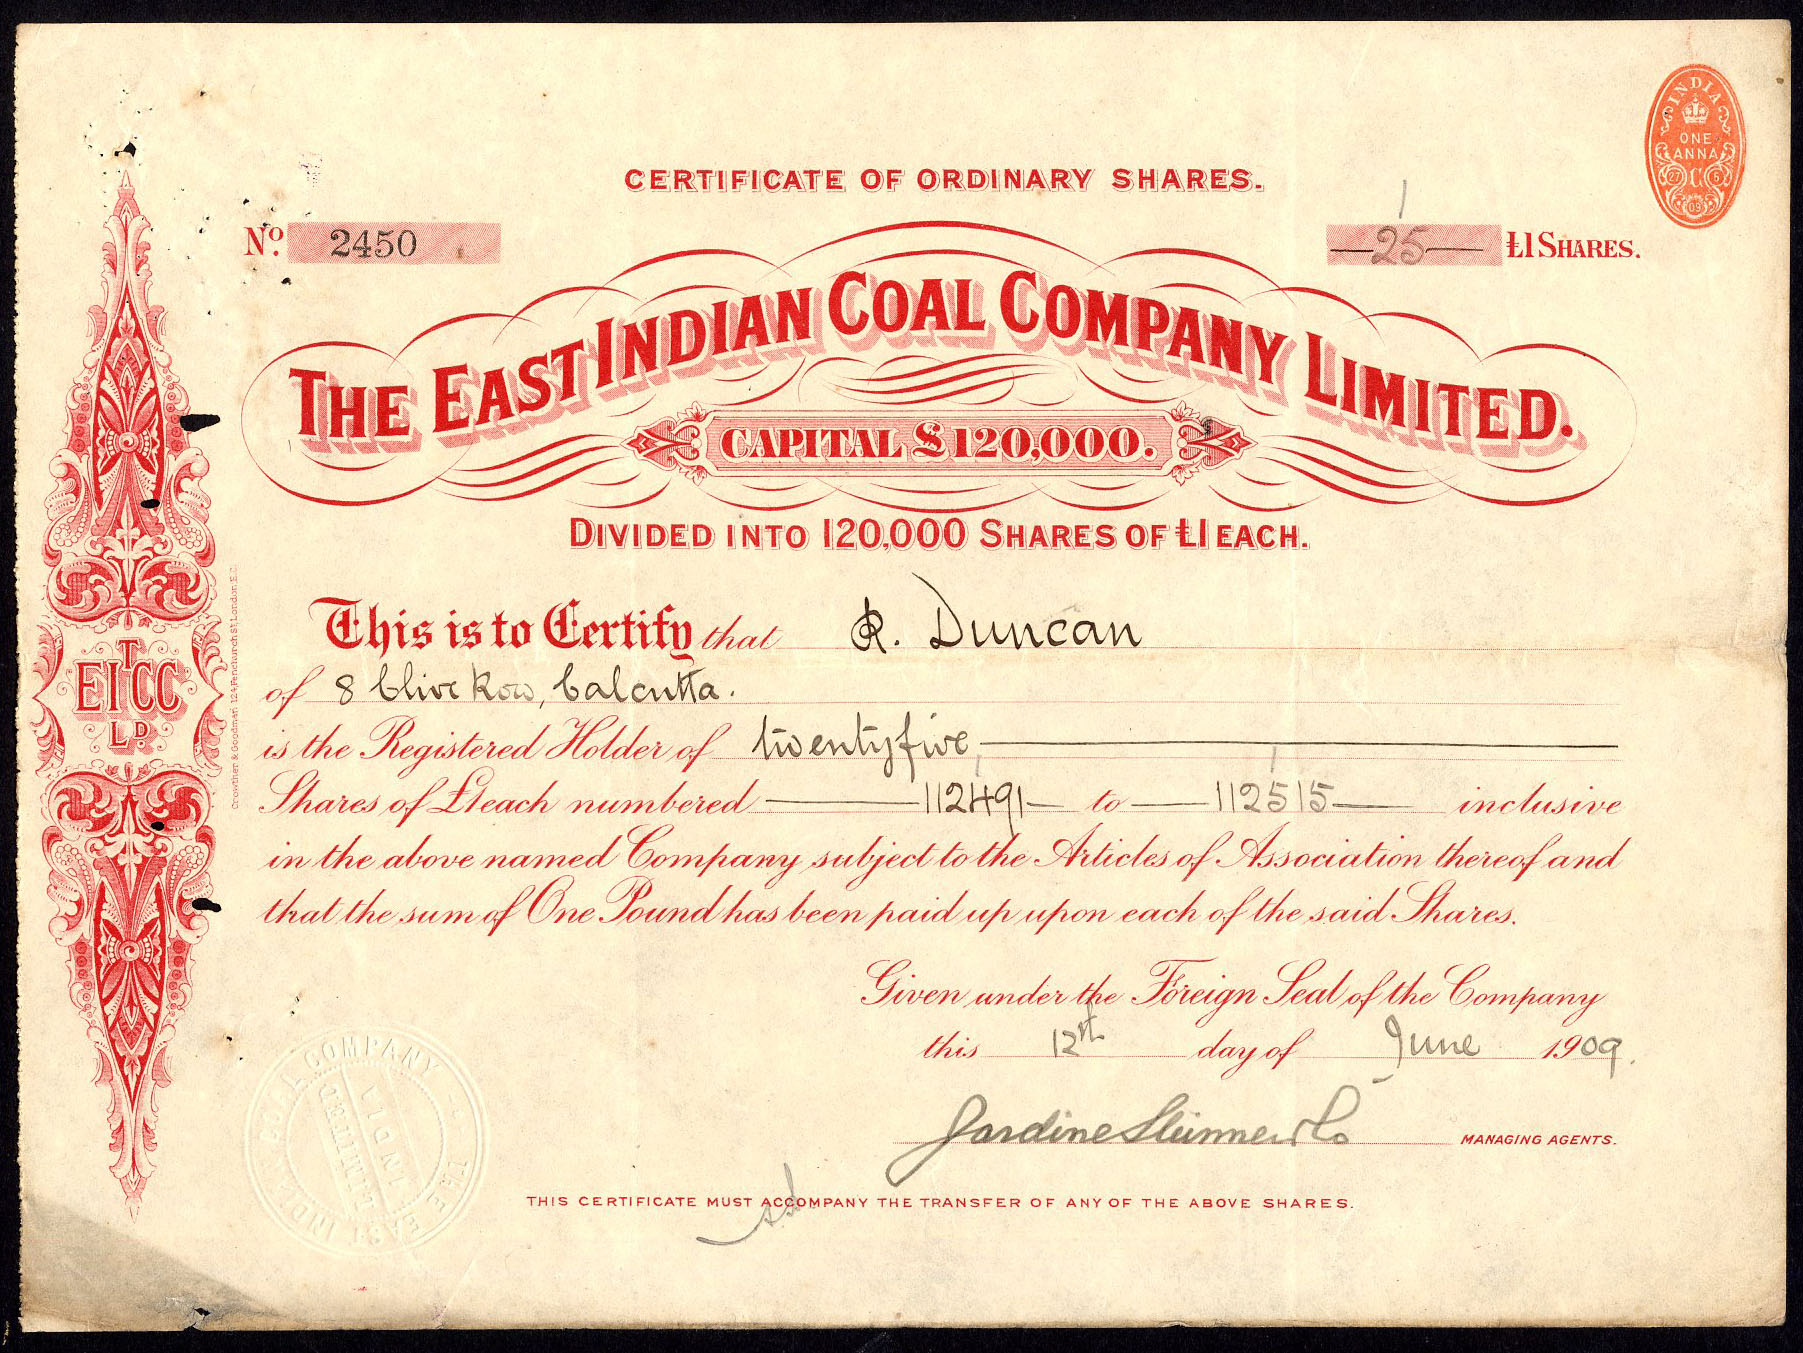 INDIA
ONE
ANNA
C
27 5
09
CERTIFICATE OF ORDINARY SHARES.
No. 2450
—25— £1 SHARES.
THE EAST INDIAN COAL COMPANY LIMITED.
CAPITAL £120,000.
DIVIDED INTO 120,000 SHARES OF £1 EACH.
This is to Certify that R. Duncan
of 8 Clive Row, Calcutta.
is the Registered Holder of twentyfive
Shares of £1 each numbered —112491— to —112515— inclusive
in the above named Company subject to the Articles of Association thereof and
that the sum of One Pound has been paid up upon each of the said Shares.
Given under the Foreign Seal of the Company
this 12th day of June 1909.
Jardine Skinner & Co
MANAGING AGENTS.
THIS CERTIFICATE MUST ACCOMPANY THE TRANSFER OF ANY OF THE ABOVE SHARES.
T
EICC
LD.
Crowther & Goodman, 124, Fenchurch St, London. E.C.
THE EAST INDIAN COAL COMPANY
LIMITED
INDIA